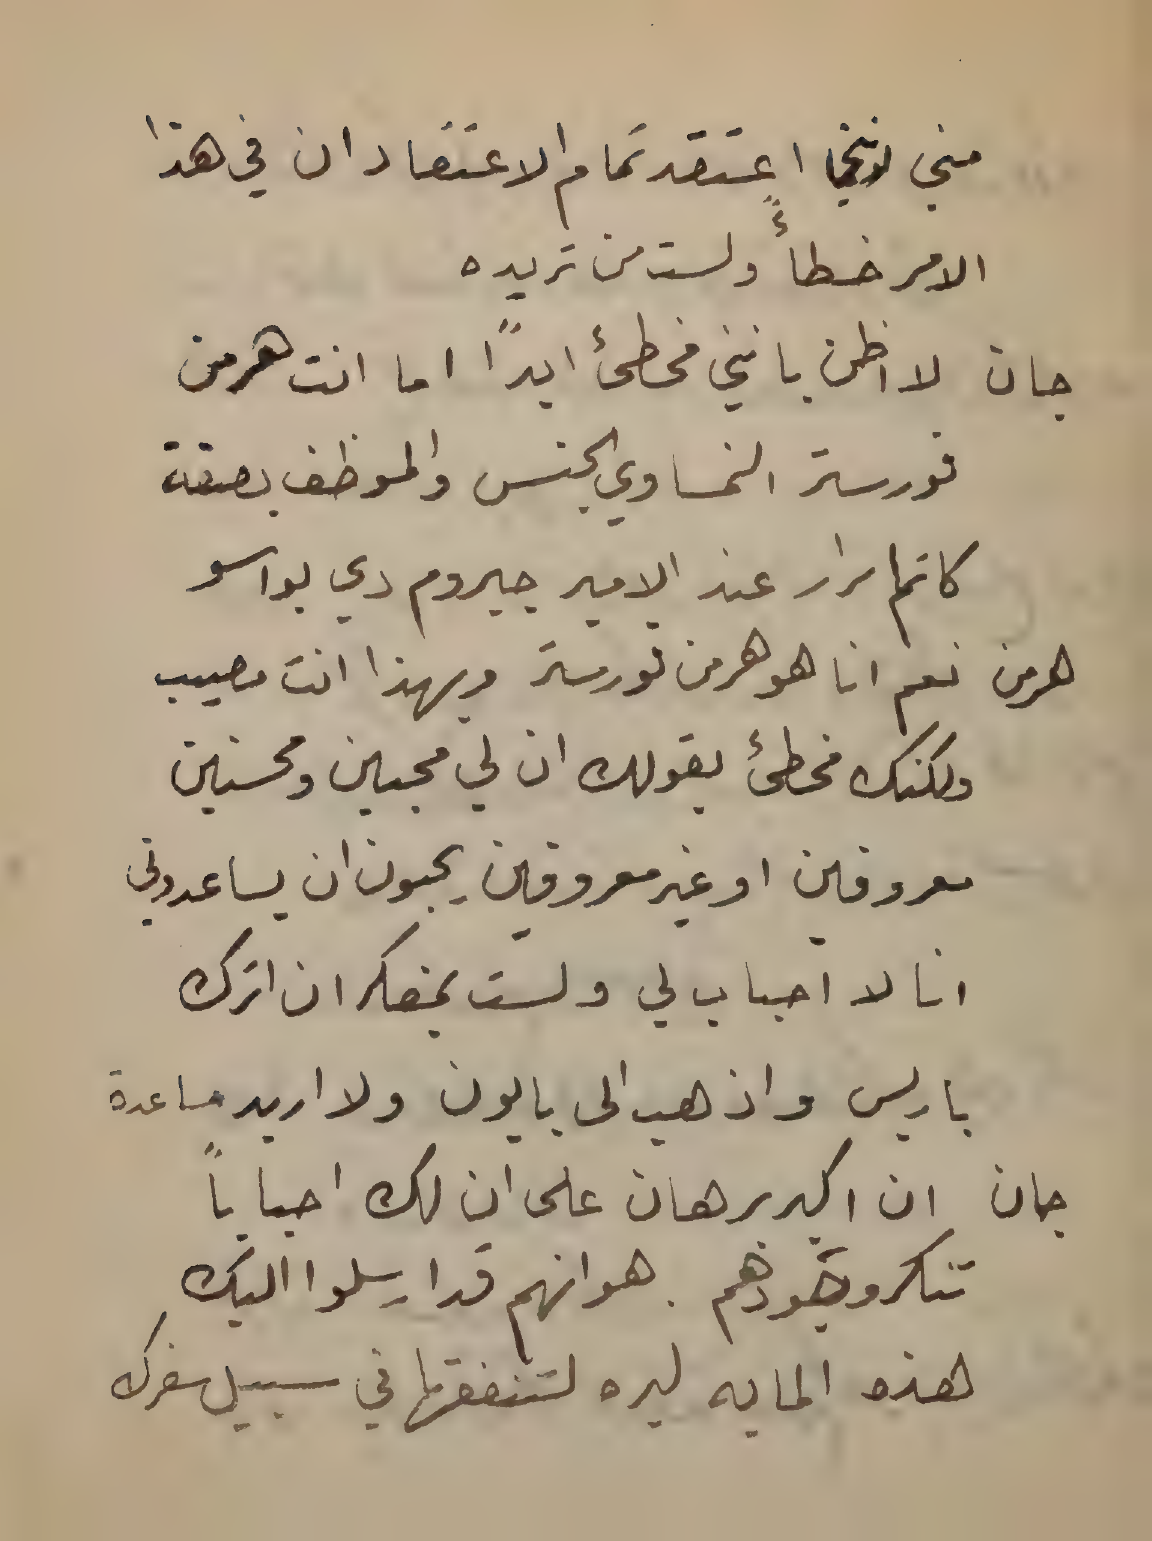 مني لانني اعتقد تمام الاعتقاد ان في هذا
الامر خطأً ولست من تريده
جان لا اظن بانني مخطئ ابدًا اما انت هرمن
فورستر النمساوي الجنس والموظف بصفة
كاتم اسرار عند الامير جيروم دي بواسو
هرمن نعم انا هو هرمن فورستر وبهذا انت مصيب
ولكنك مخطئ بقولك ان لي محبين ومحسنين
معروفين او غير معروفين يحبون ان يساعدوني
انا لا احباب لي ولست بمفكر ان اترك
باريس واذهب الى بايون ولا اريد مساعدة
جان ان اكبر برهان على ان لك احباباً
تنكر وجودهم . هو انهم قد ارسلوا اليك
هذه المايه ليره لتنفقها في سبيل سفرك